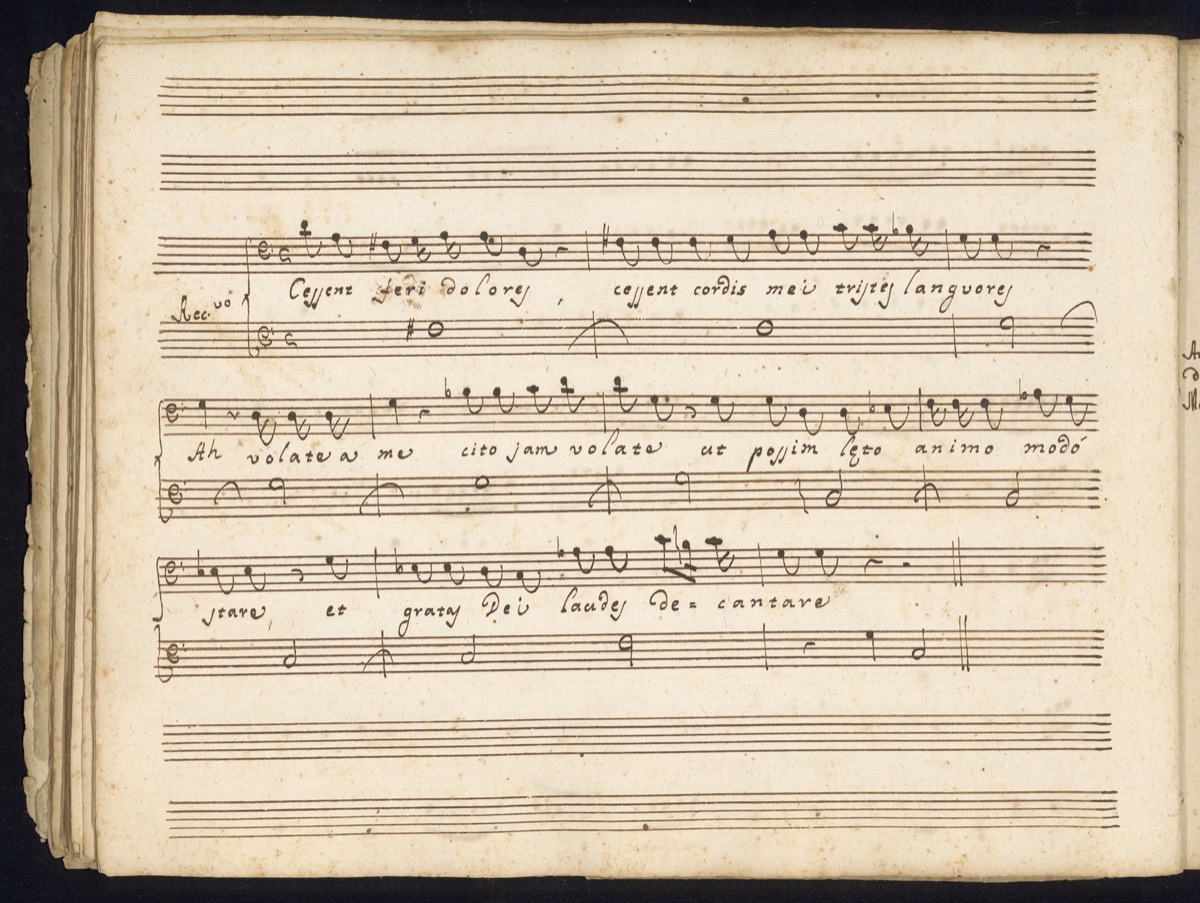 Rec.vo
Cessent feri dolores, cessent cordis mei tristes languores
Ah volate a me cito jam volate ut possim lęto animo modó
stare et grates Dei laudes de= cantare